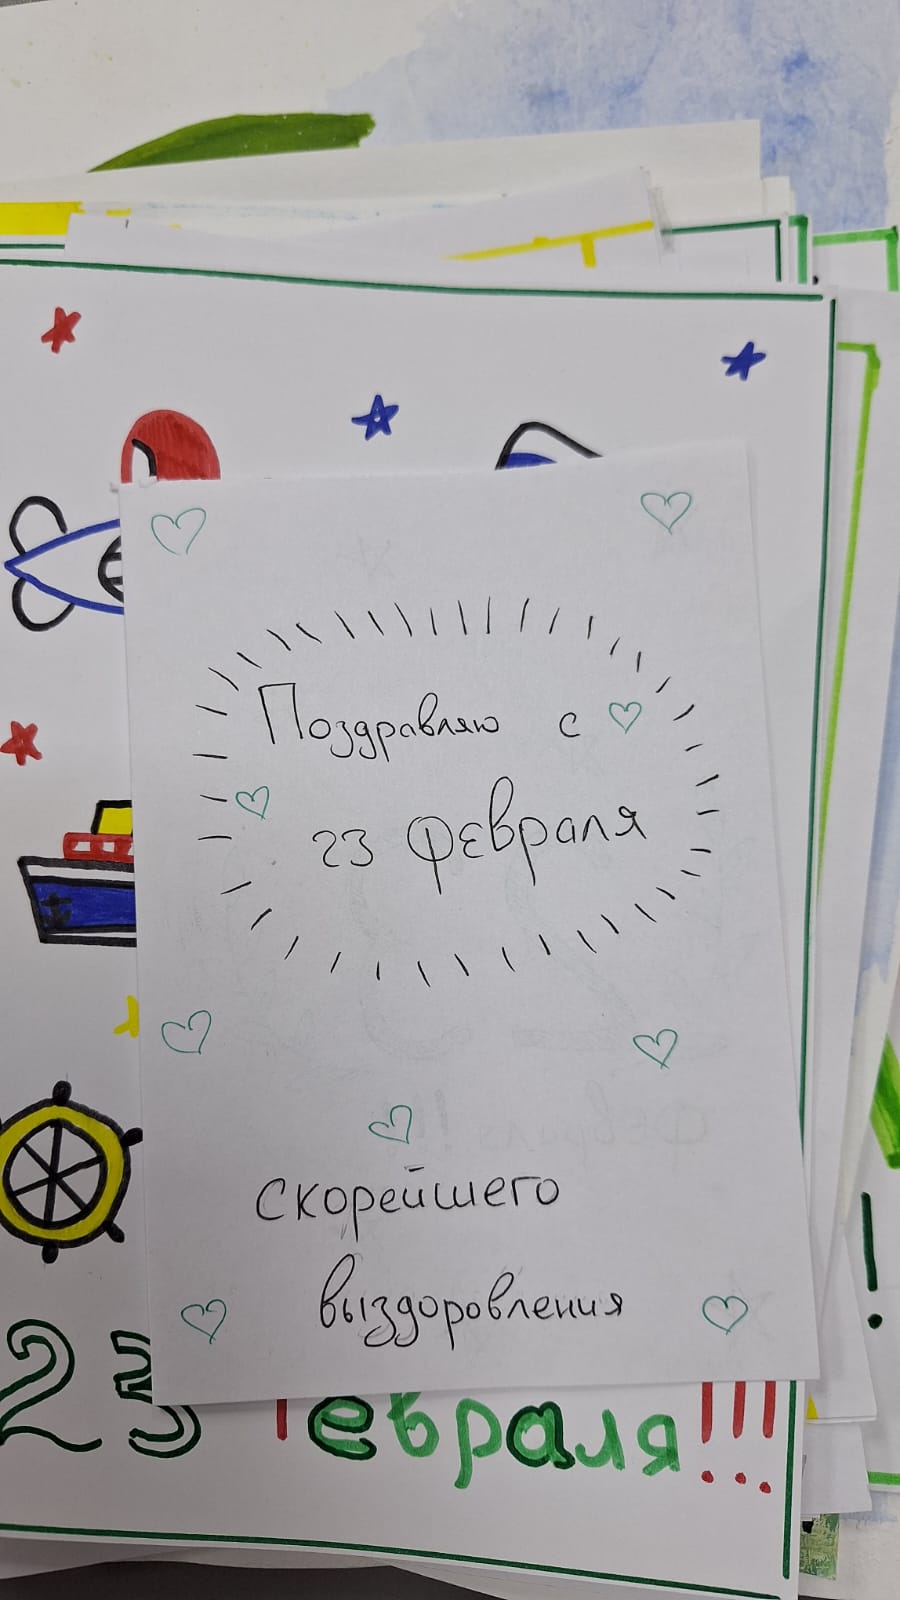 Поздравляю с
23 февраля
скорейшего
выздоровления
23 евраля!!!
!